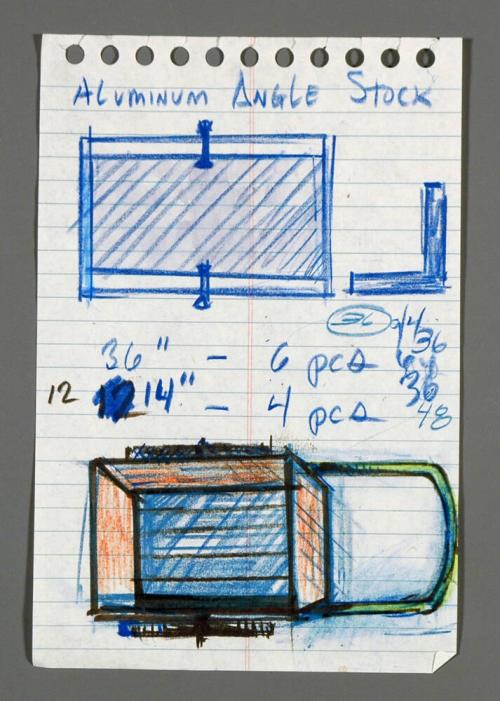 ALUMINUM ANGLE STOCK
36
36" - 6 pcs 36
12 14" - 4 pcs 48